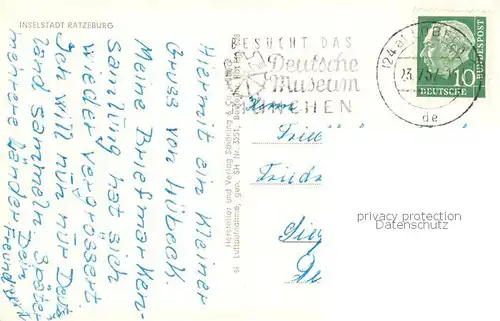 INSELSTADT RATZEBURG
Hiermit ein kleiner
Gruss von Lübeck.
Meine Briefmarken-
samlung hat sich
wieder vergrossert
Ich will nun nur Deuts
land sammeln. Später
mehrere Länder
Dein
Freund
Hersteller und Verlag Schöning & Co.
Luftaufnahme, gen. SH Nr.
BESUCHT DAS
Deutsche
Museum
MÜNCHEN
(24a) LÜBECK
de
DEUTSCHE
BUNDESPOST
10
Herrn
privacy protection
Datenschutz